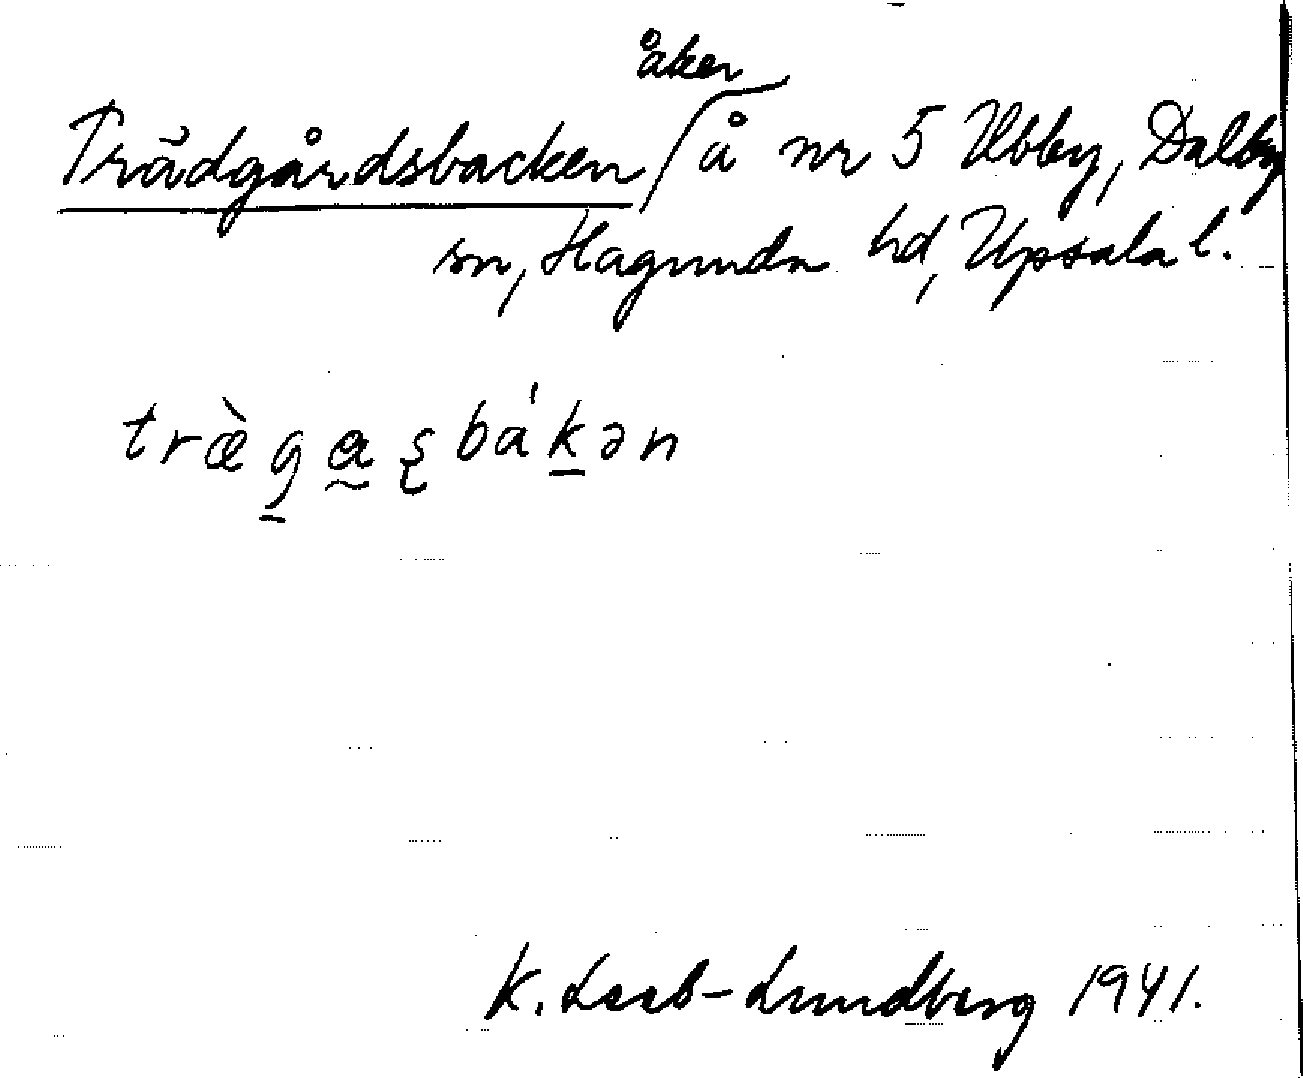 Trädgårdsbacken åker å nr 5 Ubby, Dalby
sn, Hagunda hd, Upsala l.
træ̀g̱a̰ʂbá'ḵən
K. Leeb-Lundberg 1941.